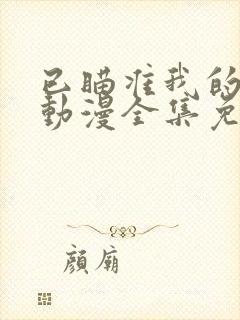 已瞄准我的
動漫全集免
顔廟